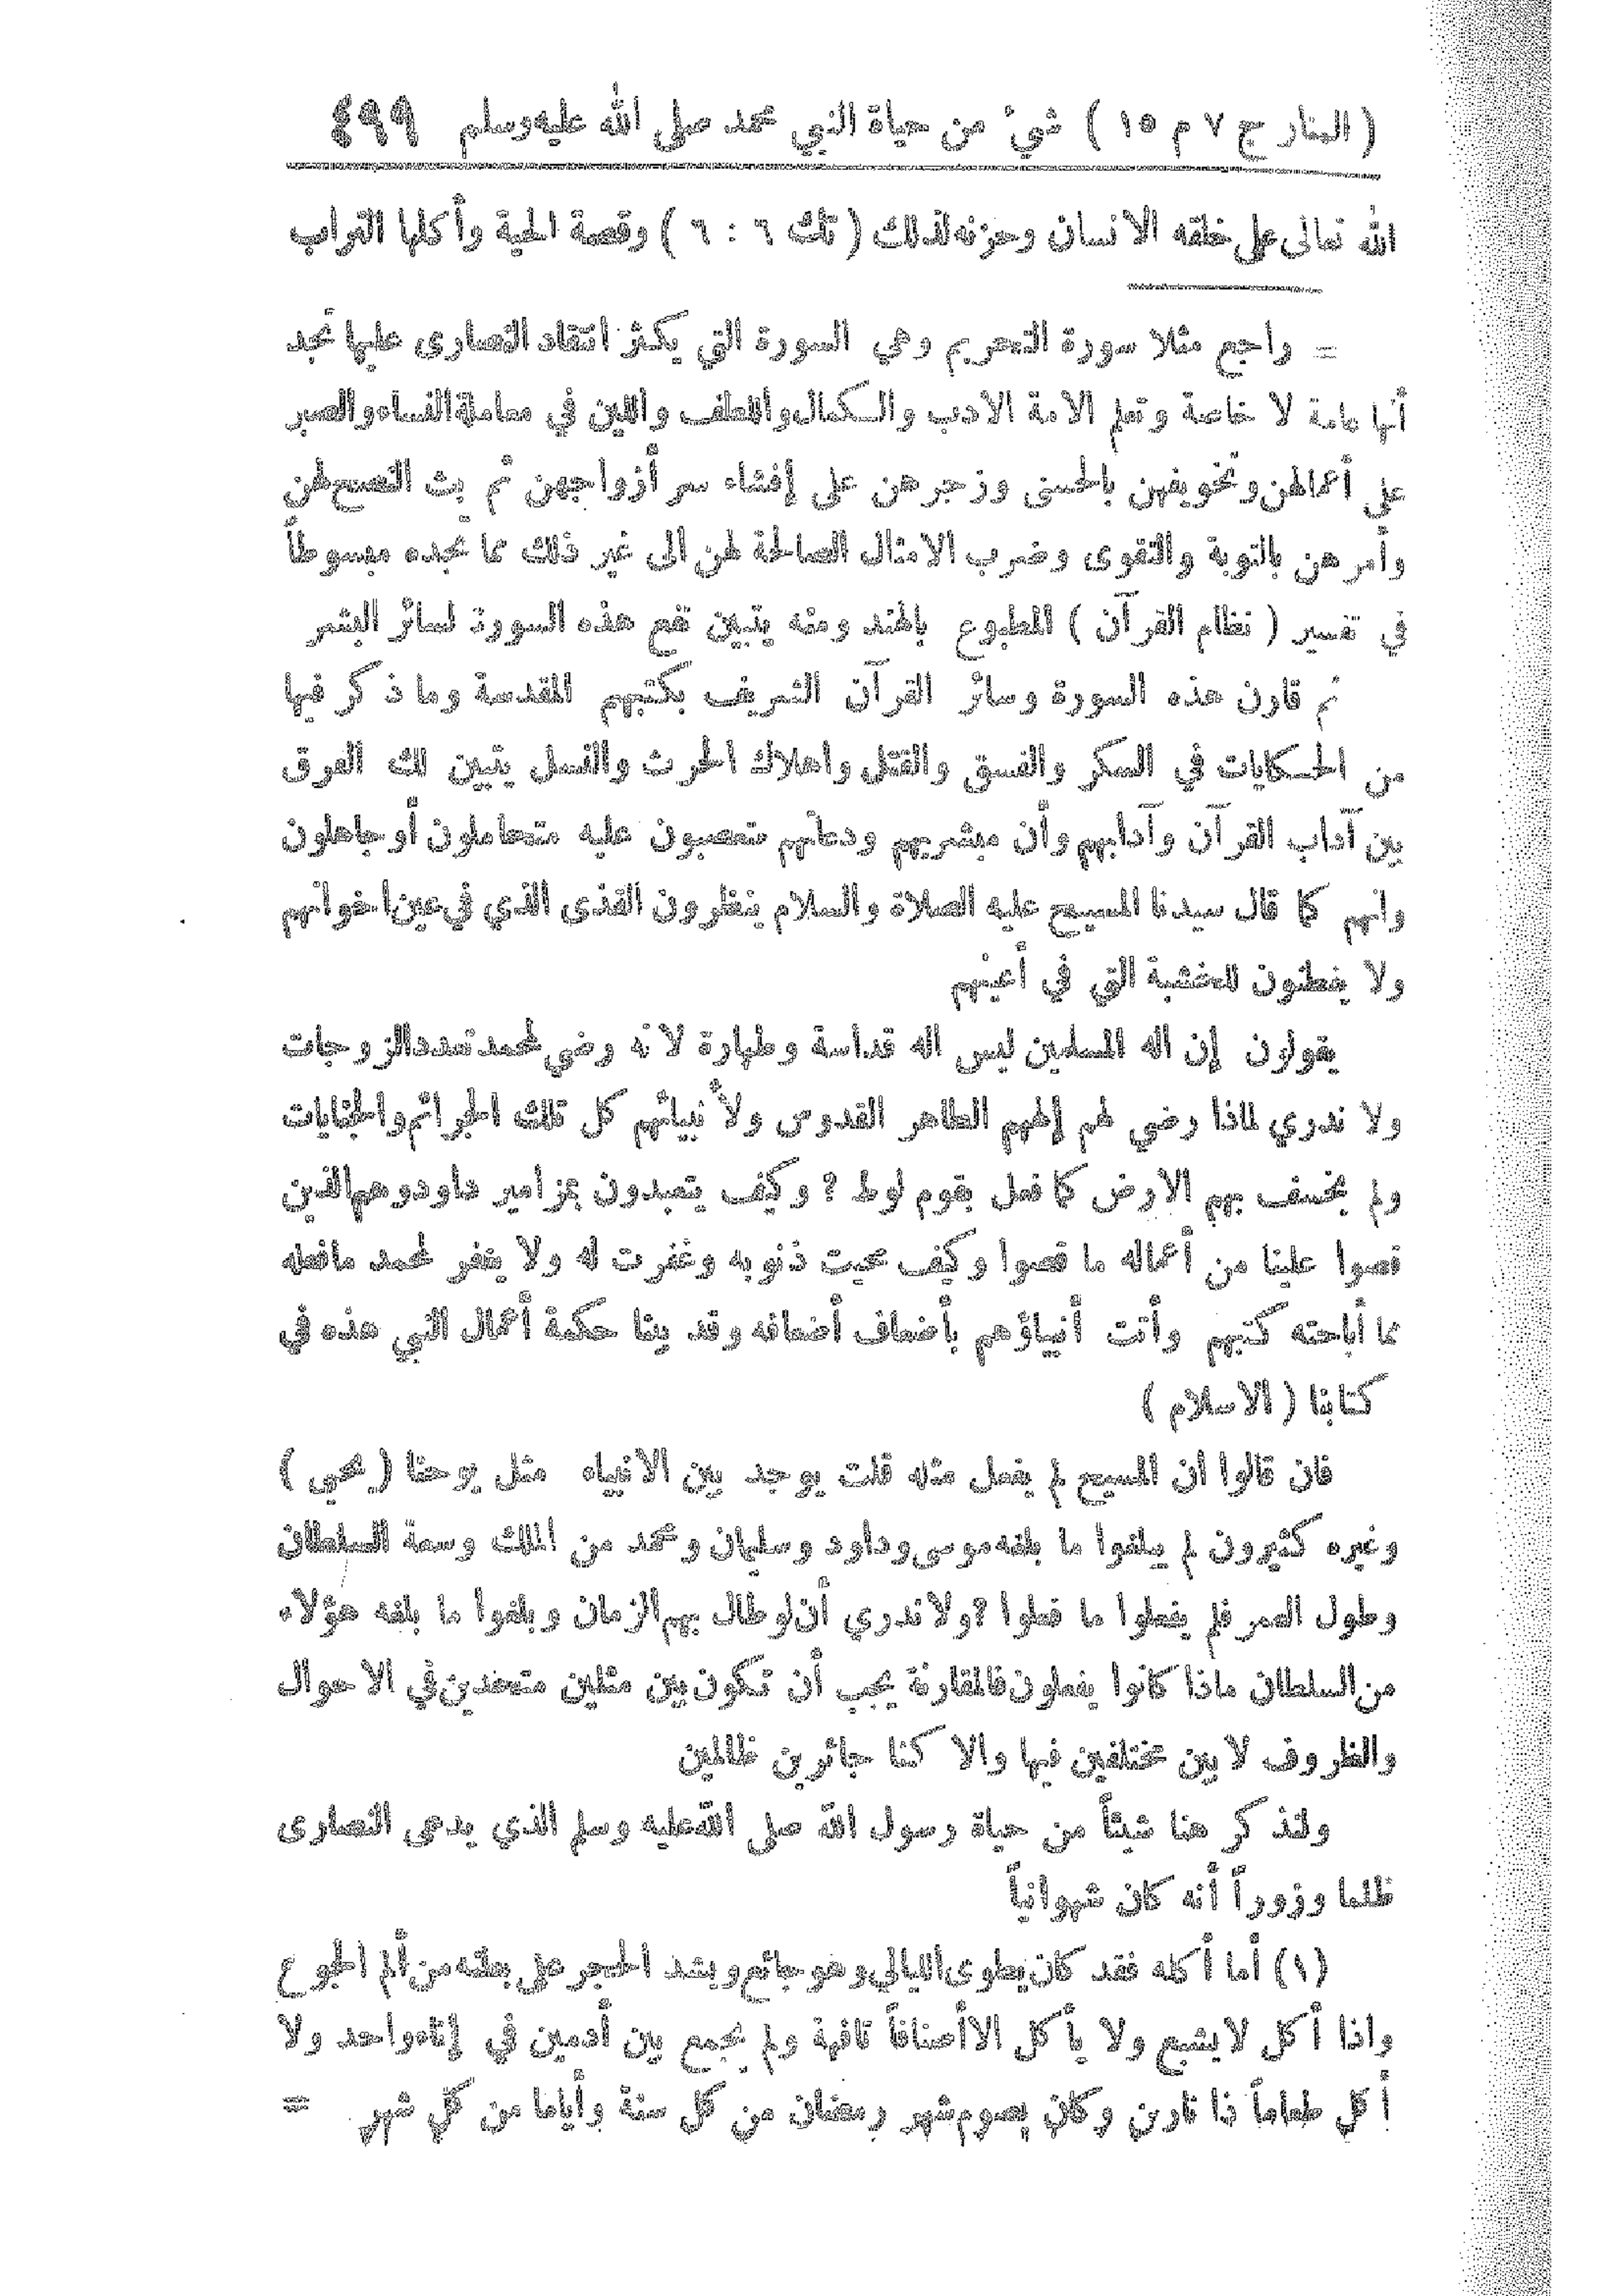 ( المنار ج ٧ م ١٥ ) شيئ من حياة النبي محمد صلى الله عليه وسلم ٤٩٩
الله تعالى على خلقه الانسان وحزنه لذلك ( تك ٦ : ٦ ) وقصة الحية وأكلها التراب
= راجع مثلا سورة التحريم وهي السورة التي يكثر انتقاد النصارى عليها تجد
أنها عامة لا خاصة وتعلم الامة الادب والكمال واللطف واللين في معاملة النساء والصبر
على أعمالهن وتخويفهن بالحسنى وزجرهن على إفشاء سر أزواجهن ثم بث النصح لهن
وأمرهن بالتوبة والتقوى وضرب الامثال الصالحة لهن الى غير ذلك مما تجده مبسوطاً
في تفسير ( نظام القرآن ) المطبوع بالهند ومنه يتبين نفع هذه السورة لسائر البشر
ثم قارن هذه السورة وسائر القرآن الشريف بكتبهم المقدسة وما ذكر فيها
من الحكايات في السكر والفسق والقتل واهلاك الحرث والنسل يتبين لك الفرق
بين آداب القرآن وآدابهم وأن مبشريهم ودعاتهم متعصبون عليه متحاملون أو جاهلون
وانهم كما قال سيدنا المسيح عليه الصلاة والسلام ينظرون القذى الذي في عين اخوانهم
ولا يفطنون للخشبة التي في أعينهم
يقولون إن اله المسلمين ليس اله قداسة وطهارة لانه رضي لمحمد تعدد الزوجات
ولا ندري لماذا رضي لهم إلههم الطاهر القدوس ولأنبيائهم كل تلك الجرائم والجنايات
ولم يخسف بهم الارض كما فعل بقوم لوط ؟ وكيف يتعبدون بمزامير داود وهم الذين
قصوا علينا من أعماله ما قصوا وكيف محيت ذنوبه وغفرت له ولا يغفر لمحمد مافعله
مما أباحته كتبهم وأتت أنبياؤهم بأضعاف أضعافه وقد بينا حكمة أعمال النبي هذه في
كتابنا ( الاسلام )
فان قالوا ان المسيح لم يفعل مثله قلت يوجد بين الانبياء مثل يوحنا ( يحيى )
وغيره كثيرون لم يبلغوا ما بلغه موسى وداود وسليمان ومحمد من الملك وسعة السلطان
وطول العمر فلم يفعلوا ما فعلوا ؟ ولا ندري أن لو طال بهم الزمان وبلغوا ما بلغه هؤلاء
من السلطان ماذا كانوا يفعلون فالمقارنة يجب أن تكون بين مثلين متحدين في الاحوال
والظروف لا بين مختلفين فيها والا كنا جائرين ظالمين
ولنذكر هنا شيئاً من حياة رسول الله صلى الله عليه وسلم الذي يدعي النصارى
ظلما وزوراً أنه كان شهوانياً
(١) أما أكله فقد كان يطوى الليالي وهو جائع ويشد الحجر على بطنه من ألم الجوع
واذا أكل لا يشبع ولا يأكل الا أصنافاً تافهة ولم يجمع بين أدمين في إناء واحد ولا
أكل طعاماً ذا نارين وكان يصوم شهر رمضان من كل سنة وأياما من كل شهر =